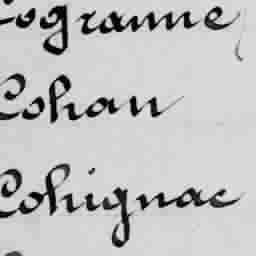 Cogranne
Cohan
Cohignac